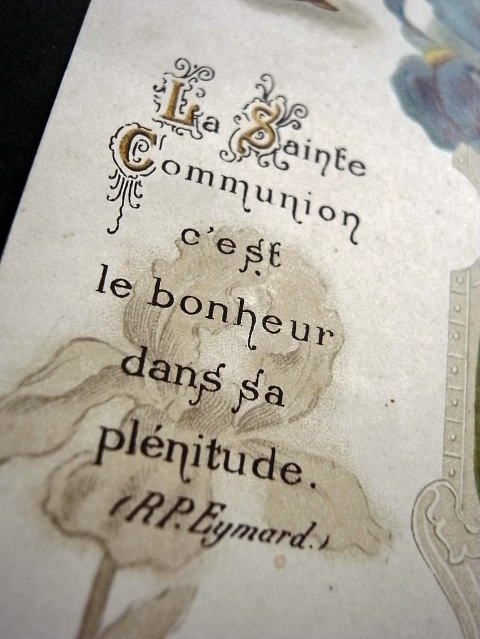 La Sainte
Communion
c'est
le bonheur
dans sa
plénitude.
(RP. Eymard.)